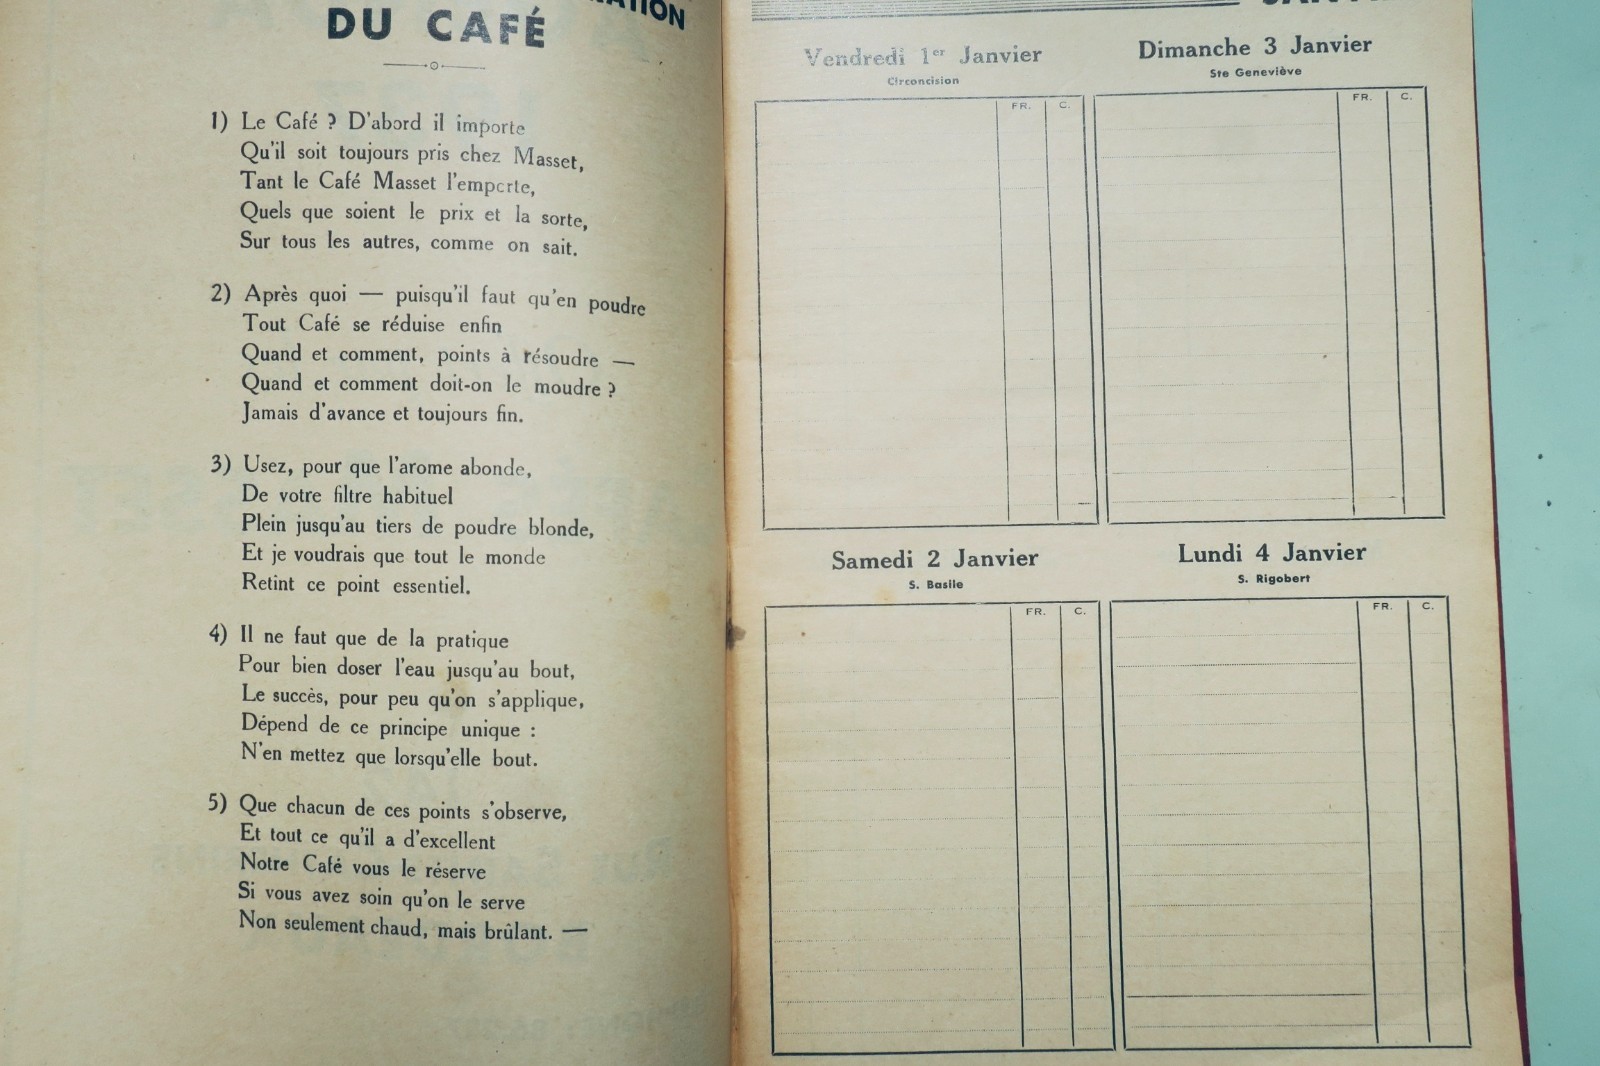 DU CAFÉ
1) Le Café ? D'abord il importe
Qu'il soit toujours pris chez Masset,
Tant le Café Masset l'emporte,
Quels que soient le prix et la sorte,
Sur tous les autres, comme on sait.
2) Après quoi — puisqu'il faut qu'en poudre
Tout Café se réduise enfin
Quand et comment, points à résoudre —
Quand et comment doit-on le moudre ?
Jamais d'avance et toujours fin.
3) Usez, pour que l'arome abonde,
De votre filtre habituel
Plein jusqu'au tiers de poudre blonde,
Et je voudrais que tout le monde
Retint ce point essentiel.
4) Il ne faut que de la pratique
Pour bien doser l'eau jusqu'au bout,
Le succès, pour peu qu'on s'applique,
Dépend de ce principe unique :
N'en mettez que lorsqu'elle bout.
5) Que chacun de ces points s'observe,
Et tout ce qu'il a d'excellent
Notre Café vous le réserve
Si vous avez soin qu'on le serve
Non seulement chaud, mais brûlant. —
Vendredi 1er Janvier
Circoncision
FR. C.
Samedi 2 Janvier
S. Basile
FR. C.
Dimanche 3 Janvier
Ste Geneviève
FR. C.
Lundi 4 Janvier
S. Rigobert
FR. C.